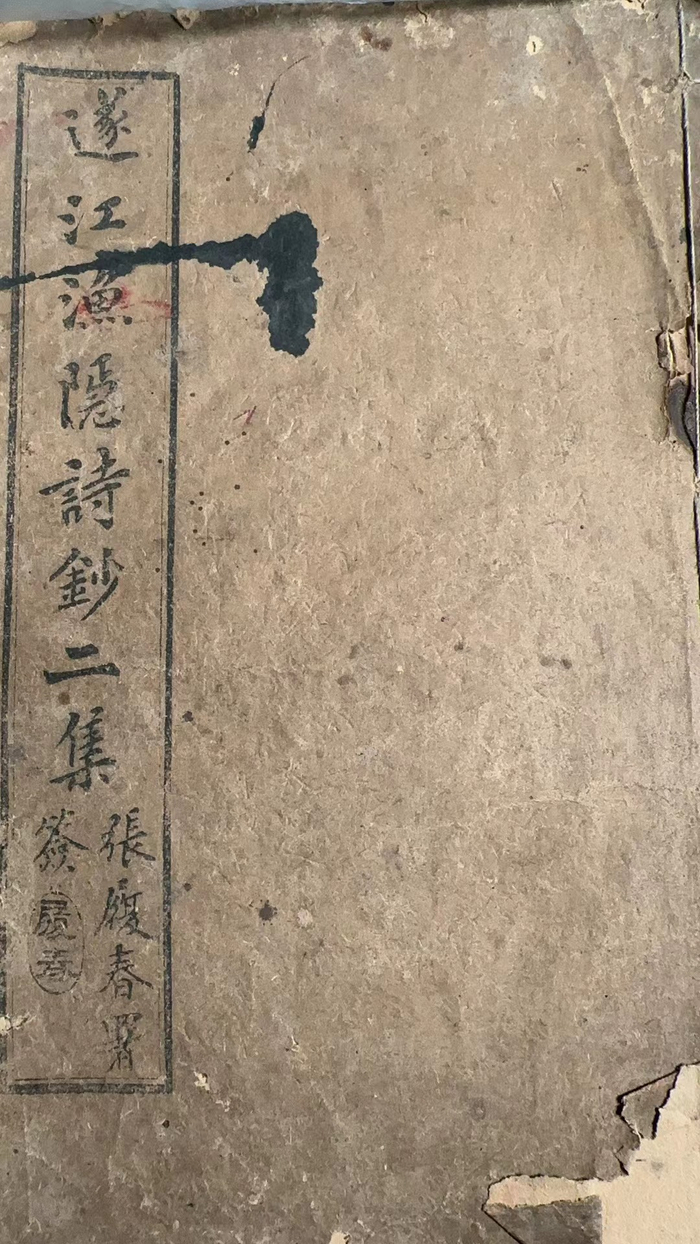 遂江漁隱詩鈔二集
張履春署
簽
履春